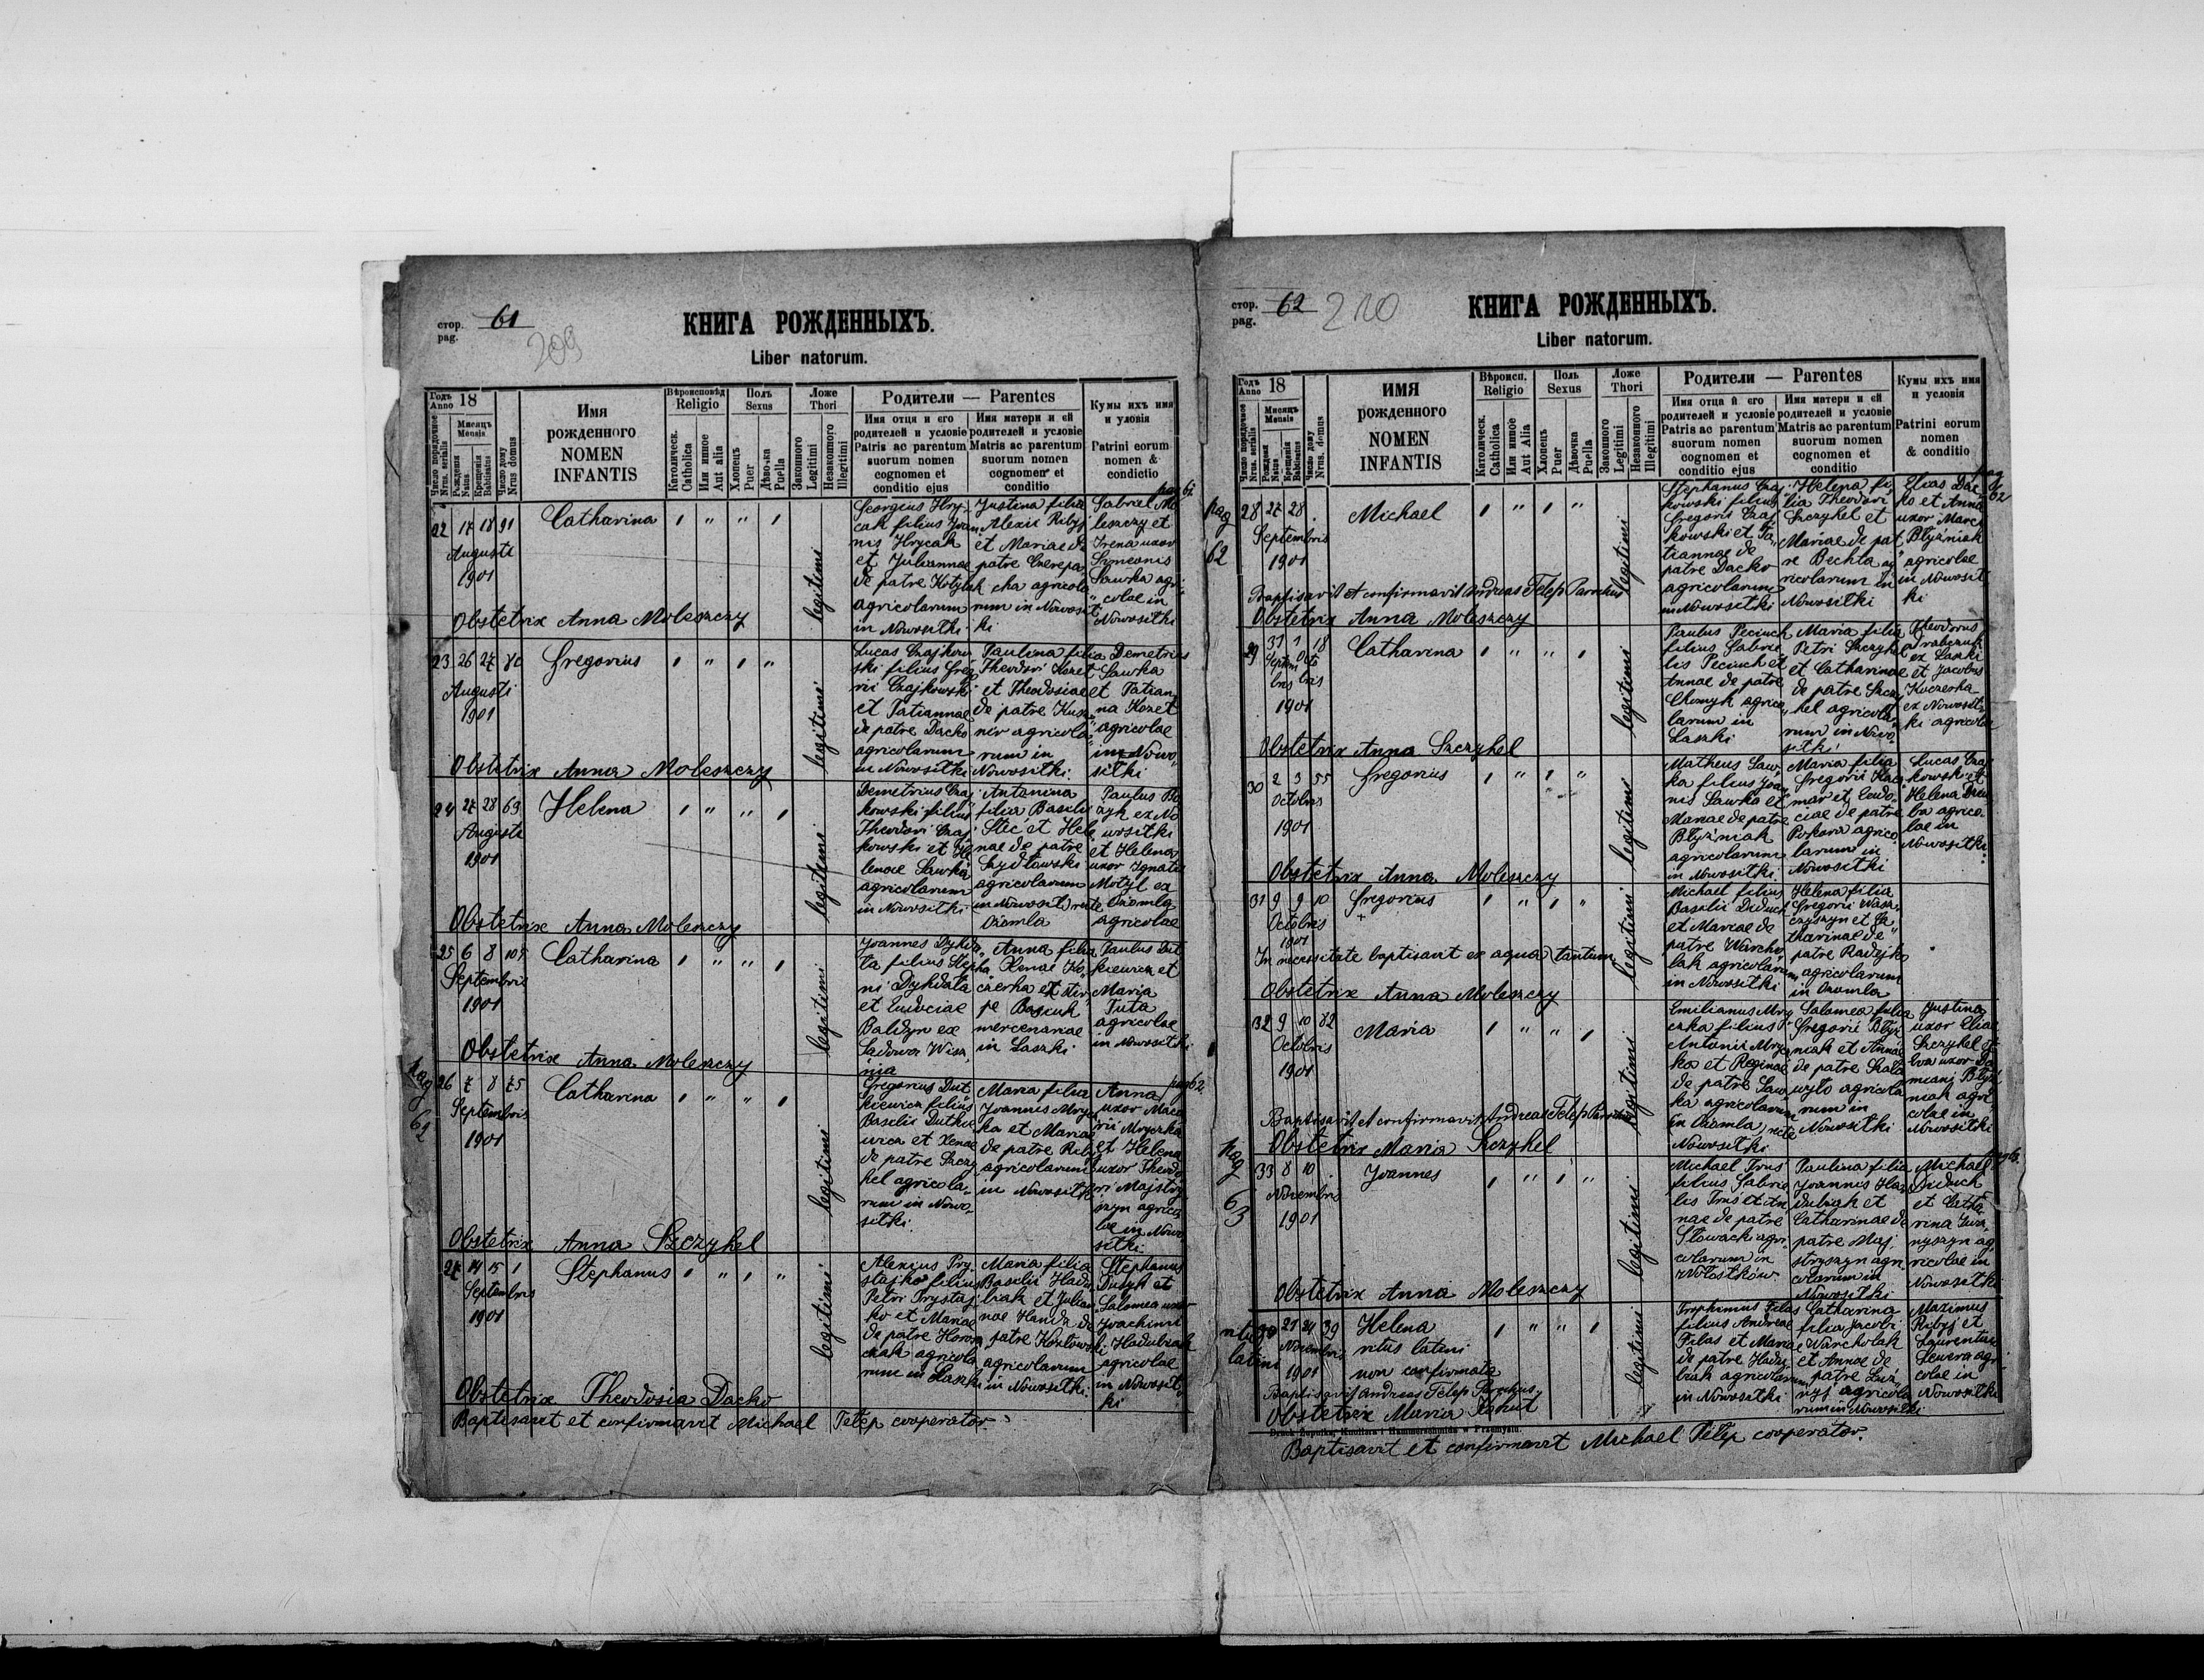 стор. 61
pag.
209
КНИГА РОЖДЕННЫХЪ.
Liber natorum.
Годъ Anno 18
Мѣсяцъ Mensis
Число порядочное Nrus. serialis
Рожденія Natus
Крещенія Babtisatus
Число дому Nrus domus
Имя
рожденного
NOMEN
INFANTIS
Вѣроисповѣд
Religio
Католическ. Catholica
Или иное Aut alia
Полъ
Sexus
Хлопецъ Puer
Дѣвочка Puella
Ложе
Thori
Законного Legitimi
Незаконного Illegitimi
Родители — Parentes
Имя отца и его
родителей и условіе
Patris ac parentum
suorum nomen
cognomen et
conditio ejus
Имя матери и ей
родителей и условіе
Matris ac parentum
suorum nomen
cognomen et
conditio
Кумы ихъ имя
и уловія
Patrini eorum
nomen &
condietio
22 17 18 91 Catharina
Augusti
1901
legitimi
Georgius Hry-
cak filius Joan
nis Hrycak
et Juliannae
de patre Kotylak
agricolarum
in Nowosilki
Justina filia
Alexii Ribyj
et Mariae de
patre Czerepa
cha agricola
rum in Nowosil
ki
Gabriel Mo
leszczy et
Irena uxor
Simeonis
Sawka agri
colae in
Nowosilki
Obstetrix Anna Moleszczy
23 26 27 80 Gregorius
Augusti
1901
legitimi
Lucas Czajkow
ski filius Greg
rii Czajkowski
et Tatiannae
de patre Dacko
agricolarum
in Nowosilki
Paulina filia
Theodori Kozet
et Theodosiae
de patre Kusz
nir agricola
rum in
Nowosilki.
Demetrius
Sawka
et Tatian
na Kozet
agricolae
in Nowo
silki
Obstetrix Anna Moleszczy
24 27 28 69 Helena
Augusti
1901
legitimi
Demetrius Czaj
kowski filius
Theodori Czaj
kowski et He
lenae Sawka
agricolarum
in Nowosilki
Antonina
filia Basilii
Stec et Hele
nae de patre
Szydłowski
agricolarum
in Nowosil
Ożomla
Paulus
ex No
wosilki
et Helena
uxor Ignatii
Motyl ex
Ożomla
agricolae
Obstetrix Anna Moleszczy
25 6 8 105 Catharina
Septembris
1901
legitimi
Joannes Dyhda
ła filius Stepha
ni Dyhdała
et Eudociae
Baldyn ex
Sadowa Wisz
nia
Anna filia
Xeniae Ko
czerka et
pe
mercenariae
in Laszki
Paulus Dut
kiewicz et
Maria
Tuta
agricolae
in Nowosilki
Obstetrix Anna Moleszczy
pag
62
26 7 8 75 Catharina
Septembris
1901
legitimi
Gregorius Dut
kiewicz filius
Basilii Dutkie
wicz et Xeniae
de patre Szczy
hel agricola
rum in Nowo
silki
Maria filia
Joannis Mry
ka et Mariae
de patre Ribyj
agricolarum
in Nowosilki
Anna
uxor Maca
rii Mryczka
et Helena
uxor Theodo
ri Majstry
szyn agrico
lae in Nowo
silki
Obstetrix Anna Szczyhel
27 14 15 1 Stephanus
Septembris
1901
legitimi
Alexius Pry
stajko filius
Petri Prystaj
ko et Mariae
de patre Horon
czak agricola
rum in Laszki
Maria filia
Basilii Hadu
biak et Julian
nae
patre Kozłowski
agricolarum
in Nowosilki
Stephanus
Dudyk et
Salomea uxor
Joachimi
Hadubiak
agricolae
in Nowosil
ki
Obstetrix Theodosia Dacko
Baptisavit et confirmavit Michael Telep cooperator.
стор. 62
pag.
210
КНИГА РОЖДЕННЫХЪ.
Liber natorum.
Годъ Anno 18
Мѣсяцъ Mensis
ИМЯ
рожденного
NOMEN
INFANTIS
Вѣроисп.
Religio
Католическ. Catholica
Или иное Aut Alia
Поль
Sexus
Хлопецъ Puer
Дѣвочка Puella
Ложе
Thori
Законного Legitimi
Незаконного Illegitimi
Родители — Parentes
Имя отца й его
родителей и условіе
Patris ac parentum
suorum nomen
cognomen et
conditio ejus
Имя матери и ей
родителей и условіе
Matris ac parentum
suorum nomen
cognomen et
conditio
Кумы ихъ имя
и условія
Patrini eorum
nomen
& conditio
pag
62
28 27 28 Michael
Septembris
1901
legitimi
Stephanus Czaj
kowski filius
Gregorii Czaj
kowski et Ta
tiannae de
patre Dacko
agricolarum
in Nowosilki
Helena fi
lia Theodori
Szczyhel et
Mariae de pat
re Bechta ag
ricolarum in
Nowosilki
Elias Dac
ko et Anna
uxor Marci
Błyźniak
agricolae
in Nowosil
ki
Baptisavit et confirmavit Andreas Telep Parochus
Obstetrix Anna Moleszczy
29 31 1 18 Catharina
Septem Octo
bris bris
1901
legitimi
Paulus Peciuch
filius Gabrie
lis Peciuch et
Annae de patre
Chomyk agrico
larum in
Laszki
Maria filia
Petri Szczyhel
et Catharinae
de patre Szczy
hel agricola
rum in Nowo
silki
Theodorus
ex Laszki
et Jacobus
Koczerka
ex Nowosil
ki agricolae
Obstetrix Anna Szczyhel
30 2 3 55 Gregorius
Octobris
1901
legitimi
Matheus Saw
ka filius Joan
nis Sawka et
Mariae de patre
Błyźniak
agricolarum
in Nowosilki.
Maria filia
Gregorii Kacz
mar et Eudo
ciae de patre
Pokora agrico
larum in
Nowosilki
Lucas Czaj
kowski et
Helena
agrico
lae in
Nowosilki.
Obstetrix Anna Moleszczy
31 9 9 10 Gregorius
Octobris +
1901
legitimi
Michael filius
Basilii Diduch
et Mariae de
patre Warcho
lak agricolarum
in Nowosilki
Helena filia
Gregorii Wasz
czyszyn et Ca
tharinae de
patre Radejko
agricolarum
in Ożomla
In necessitate baptisavit ex aqua tantum
Obstetrix Anna Moleszczy
32 9 10 82 Maria
Octobris
1901
legitimi
Emilianus Mry
czka filius
Antonii Mrycz
ka et Reginae
de patre Saw
ka agricolarum
in Ożomla
Nowosilki
Salomea filia
Gregorii Błyź
niak et Annae
de patre
agricola
rum in
Nowosilki
Justina
uxor Eliae
Szczyhel et
uxor
Błyź
niak agri
colae in
Nowosilki
Baptisavit et confirmavit Andreas Telep Parochus
Obstetrix Maria Szczyhel
pag
63
33 8 10 Joannes
Novembris
1901
legitimi
Michael Trus
filius Gabrie
lis Trus et An
nae de patre
Słowacki agri
colarum in
Wołostków
Paulina filia
Joannis Ha
dubiak et
Catharinae de
patre Maj
stryszyn agri
colarum in
Nowosilki
Michael
Diduch
et Catha
rina Iwa
nyszyn ag
ricolae in
Nowosilki
Obstetrix Anna Moleszczy
ritus
latini
21 24 39 Helena
Novembris ritus latini
1901 non confirmata
legitimi
Trophimus Filas
filius Andreae
Filas et Mariae
de patre Hadu
biak agricolarum
in Nowosilki
Catharina
filia Jacobi
Warcholak
et Annae de
patre
agricola
rum in Nowosilki
Maximus
Ribyj et
Laurentius
agri
colae in
Nowosilki
Baptisavit Andreas Telep Parochus
Obstetrix Maria
Baptisavit et confirmavit Michael Telep cooperator.